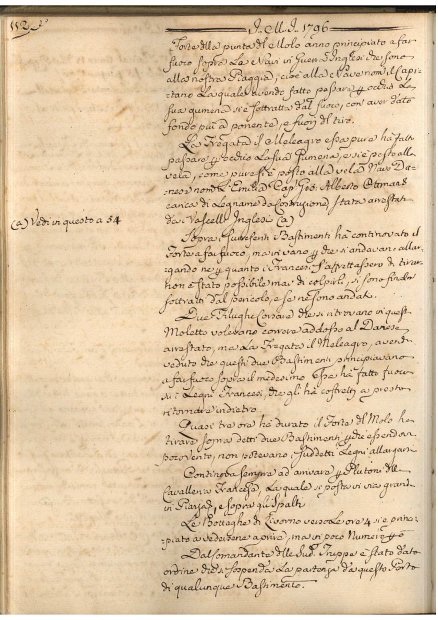 112
1796
Forte della punta del Molo anno principiato a far
fuoco sopra le Navi in Guerra Inglesi che sono
alla nostra Piaggia; cioè alla Nave nom.
La quale avendo fatto passare p occhio la
sua gumina si è sottratta dal fuoco, con aver dato
fondo più a ponente, e fuori di tiro.
La Fregata il Meleagro essa pure ha fatto
passare p occhio la sua Gumena, e si è posto alla
vela, come pure si è posto alla vela Nave Da-
nese nom. L'Emilia Cap. Gio: Alberto
carica di Legname da Costruzione, stata arrestata
da Vascelli Inglesi (a)
(a) Vedi in questo a 54
Sopra Bastimenti ha continovato il
Forte a far fuoco, ma in vano p che si andavan allar-
gando ne p quanto i Francesi
non è stato possibile mai di colpirli, si sono
sottratti dal pericolo, e se ne sono andati.
Due Filughe Corsare che si ritrovano in quest
Moletto volevano correre addosso al Danese
arrestato, ma la Fregata il Meleagro, avendo
veduto che questi due Bastimenti principiavano
a far fuoco sopra il medesimo Essa ha fatto fuoco
Legni Francesi, che gli ha costretti a presto
ritornare indietro.
Quasi tre ore ha durato il Forte del Molo ha
tirare sopra detti due Bastimenti p che essendo
poco vento, non potevano i suddetti Legni allargarsi.
Continova sempre ad arrivare p Plutoni della
Cavalleria Francese, la quale si posta in
in Piazza, e sopra gli Spalti
Le Botteghe di Livorno verso le ore 4 si è princi-
piato a vedere aprire, ma in poco Numero
Dal Comandante delle Sud. Truppe è stato dato
ordine che si sospenda la partenza da questo Porto
di qualunque Bastimento.